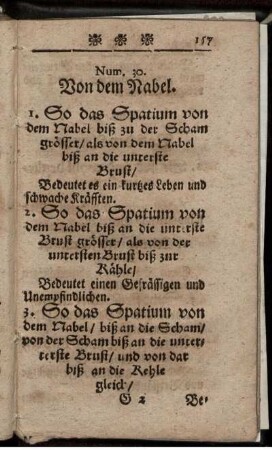 157
Num. 30.
Von dem Nabel.
1. So das Spatium von
dem Nabel biß zu der Scham
grösser/ als von dem Nabel
biß an die unterste
Brust/
Bedeutet es ein kurtzes Leben und
schwache Kräfften.
2. So das Spatium von
dem Nabel biß an die unterste
Brust grösser/ als von der
untersten Brust biß zur
Kähle/
Bedeutet einen Gefrässigen und
Unempfindlichen.
3. So das Spatium von
dem Nabel/ biß an die Scham/
von der Scham biß an die unter-
terste Brust/ und von dar
biß an die Kehle
gleich/
G 2 Be-